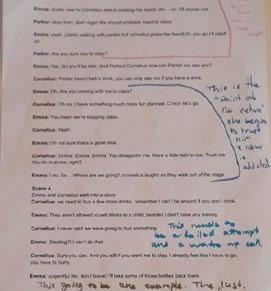 Emma: (looks over to Cornelius who is shaking his head) Uh... no. Of course not.
Parker: okay then. (bell rings) We should probably head to class.
Emma: yeah. (starts walking with parker but cornelius grabs her hand) Er, you go I'll catch up
Parker: Are you sure you're okay?
Emma: Yes. Go you'll be late. (exit Parker) Cornelius how can Parker not see you?
Cornelius: Parker hasn't had a drink, you can only see me if you have a drink.
Emma: Oh. Are you coming with me to class?
Cornelius: Oh no, I have something much more fun planned. C'mon let's go.
Emma: You mean we're skipping class.
Cornelius: Yeah!
Emma: I'm not sure thats a good idea.
Cornelius: Emma, Emma, Emma. You disappoint me. Have a little faith in me. Trust me. You do trust me, right?
Emma: I do. So... Where are we going? (cornelius laughs as they walk out of the stage)
This is the
"point of
no return"
she begins
to trust
him
& now
is
addicted
Scene 4
Emma and Cornelius walk into a store.
Cornelius: we need to buy a few more drinks, remember I can't be around if you don't drink
Emma: They aren't allowed to sell drinks to a child, besides I don't have any money.
Cornelius: I never said we were going to buy something
This needs to
be a failed attempt
and a wake up call
Emma: Stealing?! I can't do that
Cornelius: Sure you can. And you will if you want me to stay, I already feel like I have to go, you have to hurry.
Emma: (urgently) No, don't leave! I'll take some of those bottles back there.
This going to be one example. The last.